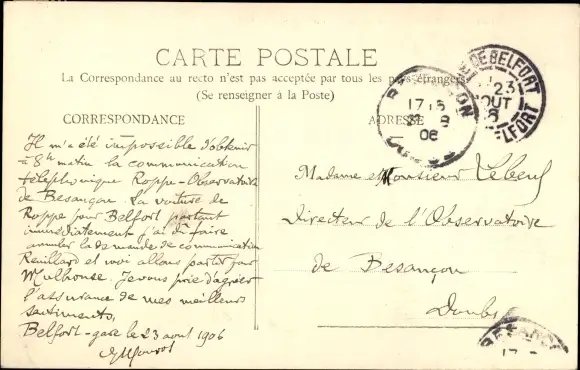 CARTE POSTALE
La Correspondance au recto n'est pas acceptée par tous les pays étrangers
(Se renseigner à la Poste)
CORRESPONDANCE
ADRESSE
Il m'a été impossible d'obtenir
8h matin la communication
téléphonique Roppe-Observatoire
de Besançon. La voiture de
Roppe pour Belfort partant
immédiatement j'ai dû faire
annuler la demande de communication
Reuillard et moi allons partir par
Mulhouse. Je vous prie d'agréer
l'assurance de mes meilleurs
sentiments,
Belfort-gare le 23 aout 1906
Madame et Monsieur Lebeuf
Directeur de l'Observatoire
de Besançon
Doubs
BESANCON
17
8
06
DE BELFORT
23
AOUT
BELFORT
BESANCON
17